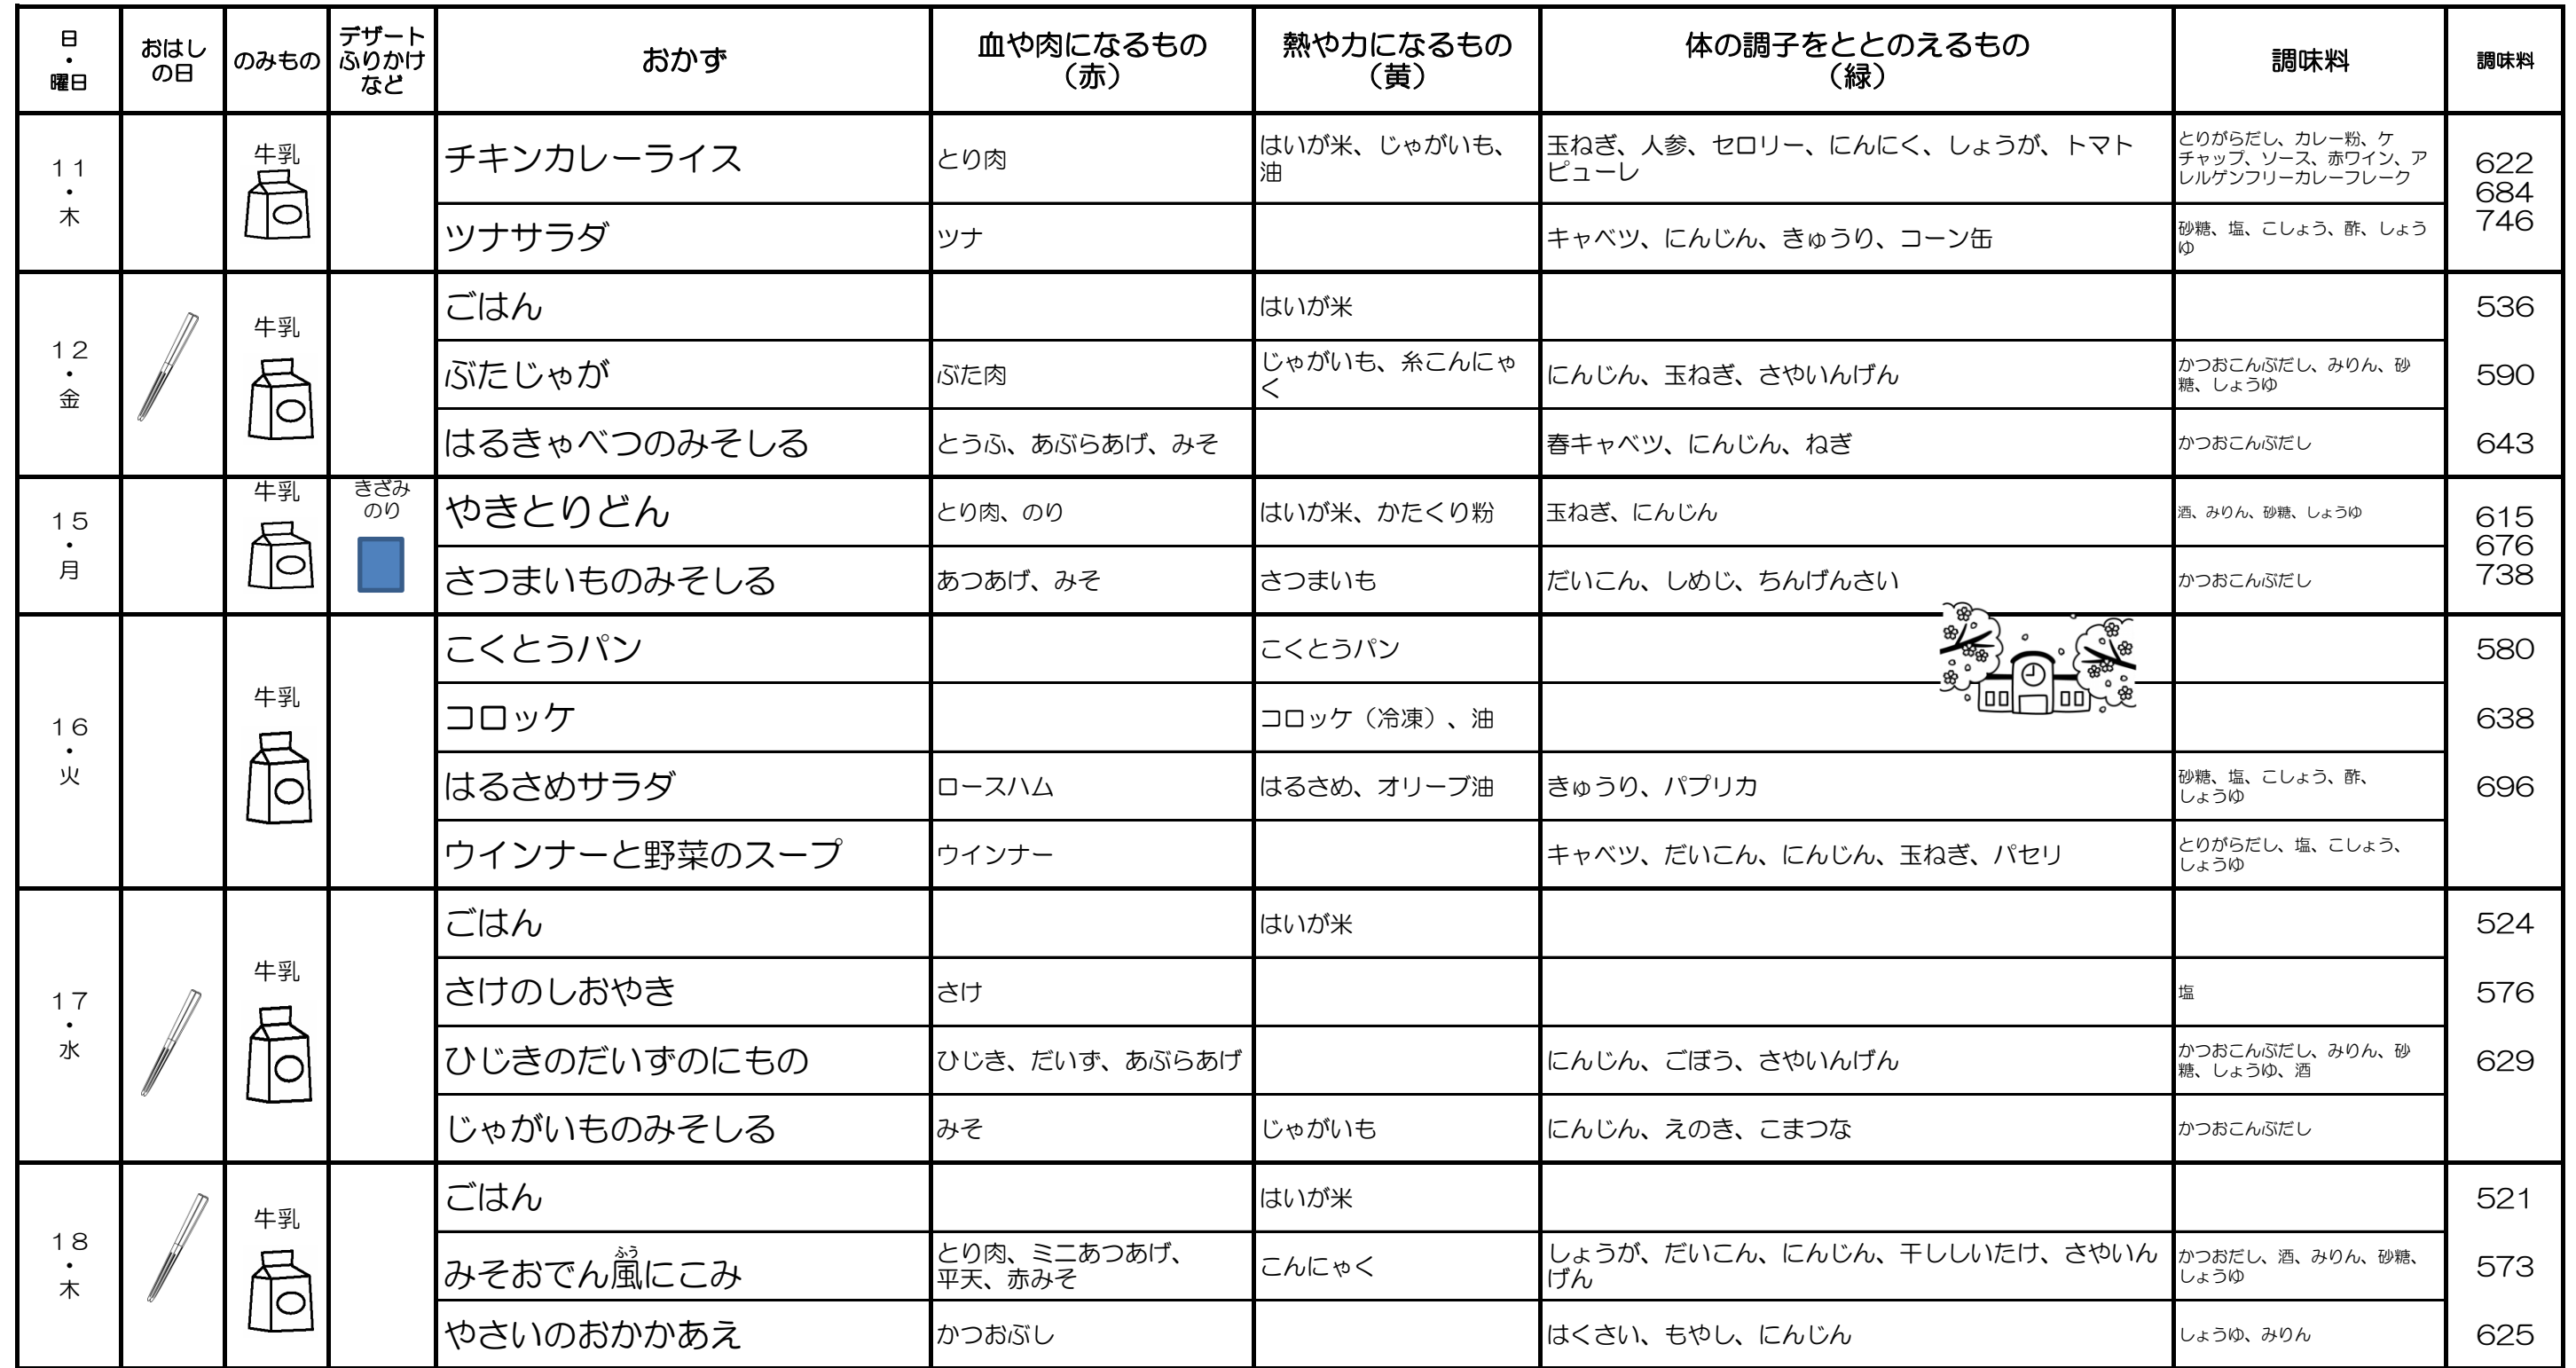 日・曜日
おはしの日
のみもの
デザート
ふりかけ
など
おかず
血や肉になるもの
（赤）
熱や力になるもの
（黄）
体の調子をととのえるもの
（緑）
調味料
調味料
11・木
牛乳
チキンカレーライス
とり肉
はいが米、じゃがいも、
油
玉ねぎ、人参、セロリー、にんにく、しょうが、トマト
ピューレ
とりがらだし、カレー粉、ケ
チャップ、ソース、赤ワイン、ア
レルゲンフリーカレーフレーク
622
684
746
ツナサラダ
ツナ
キャベツ、にんじん、きゅうり、コーン缶
砂糖、塩、こしょう、酢、しょう
ゆ
12・金
牛乳
ごはん
はいが米
536
ぶたじゃが
ぶた肉
じゃがいも、糸こんにゃ
く
にんじん、玉ねぎ、さやいんげん
かつおこんぶだし、みりん、砂
糖、しょうゆ
590
はるきゃべつのみそしる
とうふ、あぶらあげ、みそ
春キャベツ、にんじん、ねぎ
かつおこんぶだし
643
15・月
牛乳
きざみ
のり
やきとりどん
とり肉、のり
はいが米、かたくり粉
玉ねぎ、にんじん
酒、みりん、砂糖、しょうゆ
615
676
738
さつまいものみそしる
あつあげ、みそ
さつまいも
だいこん、しめじ、ちんげんさい
かつおこんぶだし
16・火
牛乳
こくとうパン
こくとうパン
580
コロッケ
コロッケ（冷凍）、油
638
はるさめサラダ
ロースハム
はるさめ、オリーブ油
きゅうり、パプリカ
砂糖、塩、こしょう、酢、
しょうゆ
696
ウインナーと野菜のスープ
ウインナー
キャベツ、だいこん、にんじん、玉ねぎ、パセリ
とりがらだし、塩、こしょう、
しょうゆ
17・水
牛乳
ごはん
はいが米
524
さけのしおやき
さけ
塩
576
ひじきのだいずのにもの
ひじき、だいず、あぶらあげ
にんじん、ごぼう、さやいんげん
かつおこんぶだし、みりん、砂
糖、しょうゆ、酒
629
じゃがいものみそしる
みそ
じゃがいも
にんじん、えのき、こまつな
かつおこんぶだし
18・木
牛乳
ごはん
はいが米
521
ふう
みそおでん風にこみ
とり肉、ミニあつあげ、
平天、赤みそ
こんにゃく
しょうが、だいこん、にんじん、干ししいたけ、さやいん
げん
かつおだし、酒、みりん、砂糖、
しょうゆ
573
やさいのおかかあえ
かつおぶし
はくさい、もやし、にんじん
しょうゆ、みりん
625